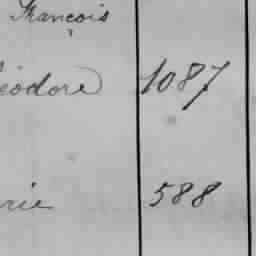 François
éodore 1087
rie 588